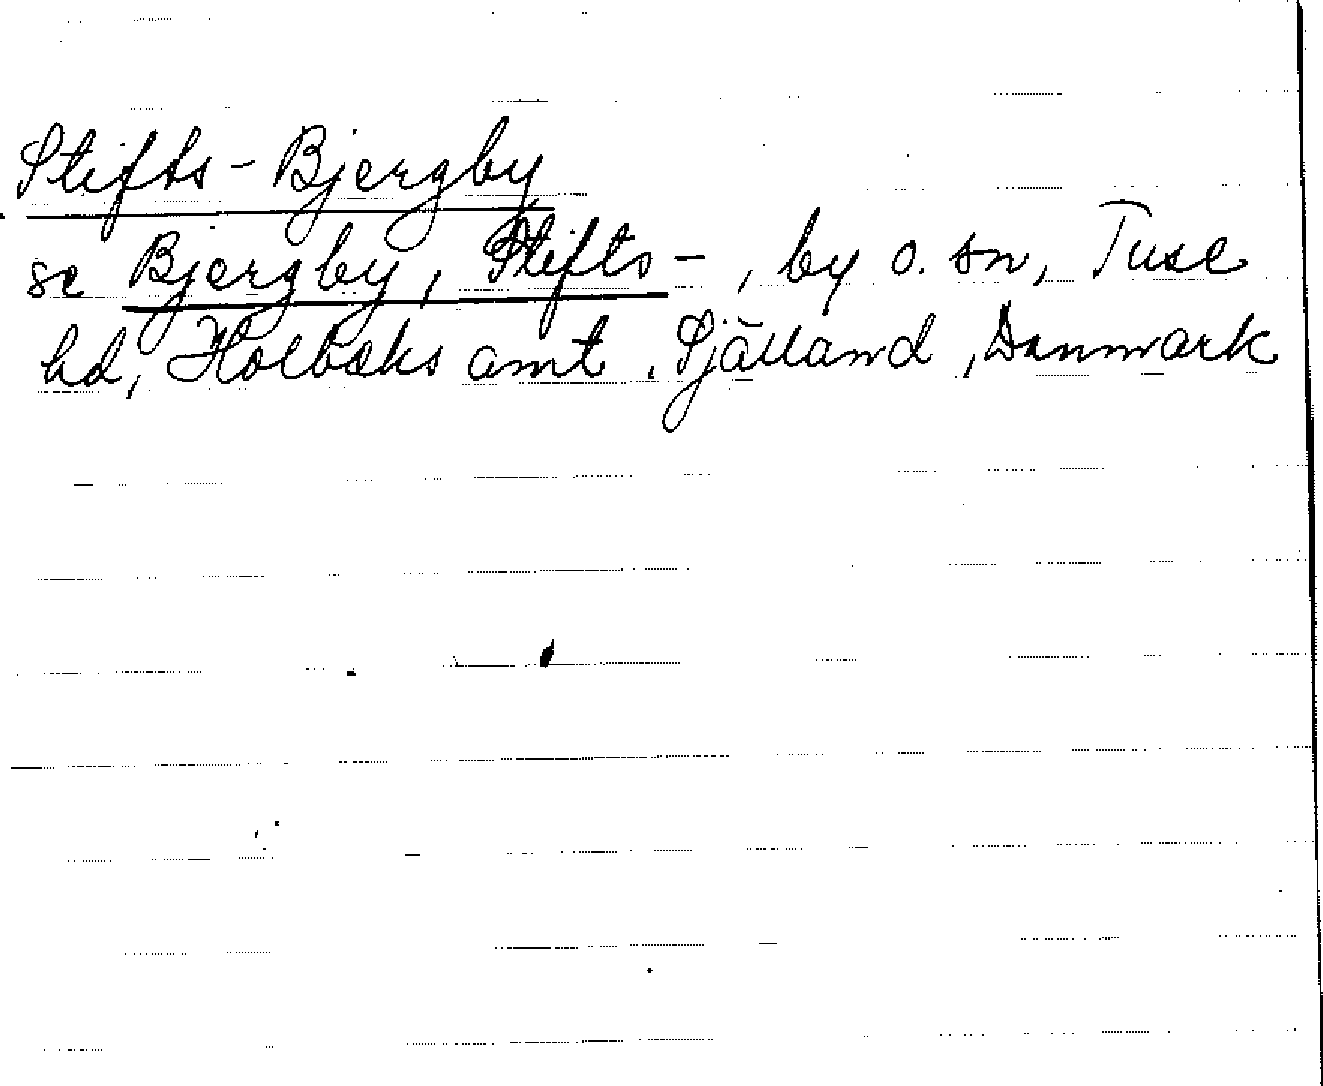 Stifts-Bjergby
se Bjergby, Stifts-, by o. sn, Tuse
hd, Holbæks amt, Själland, Danmark